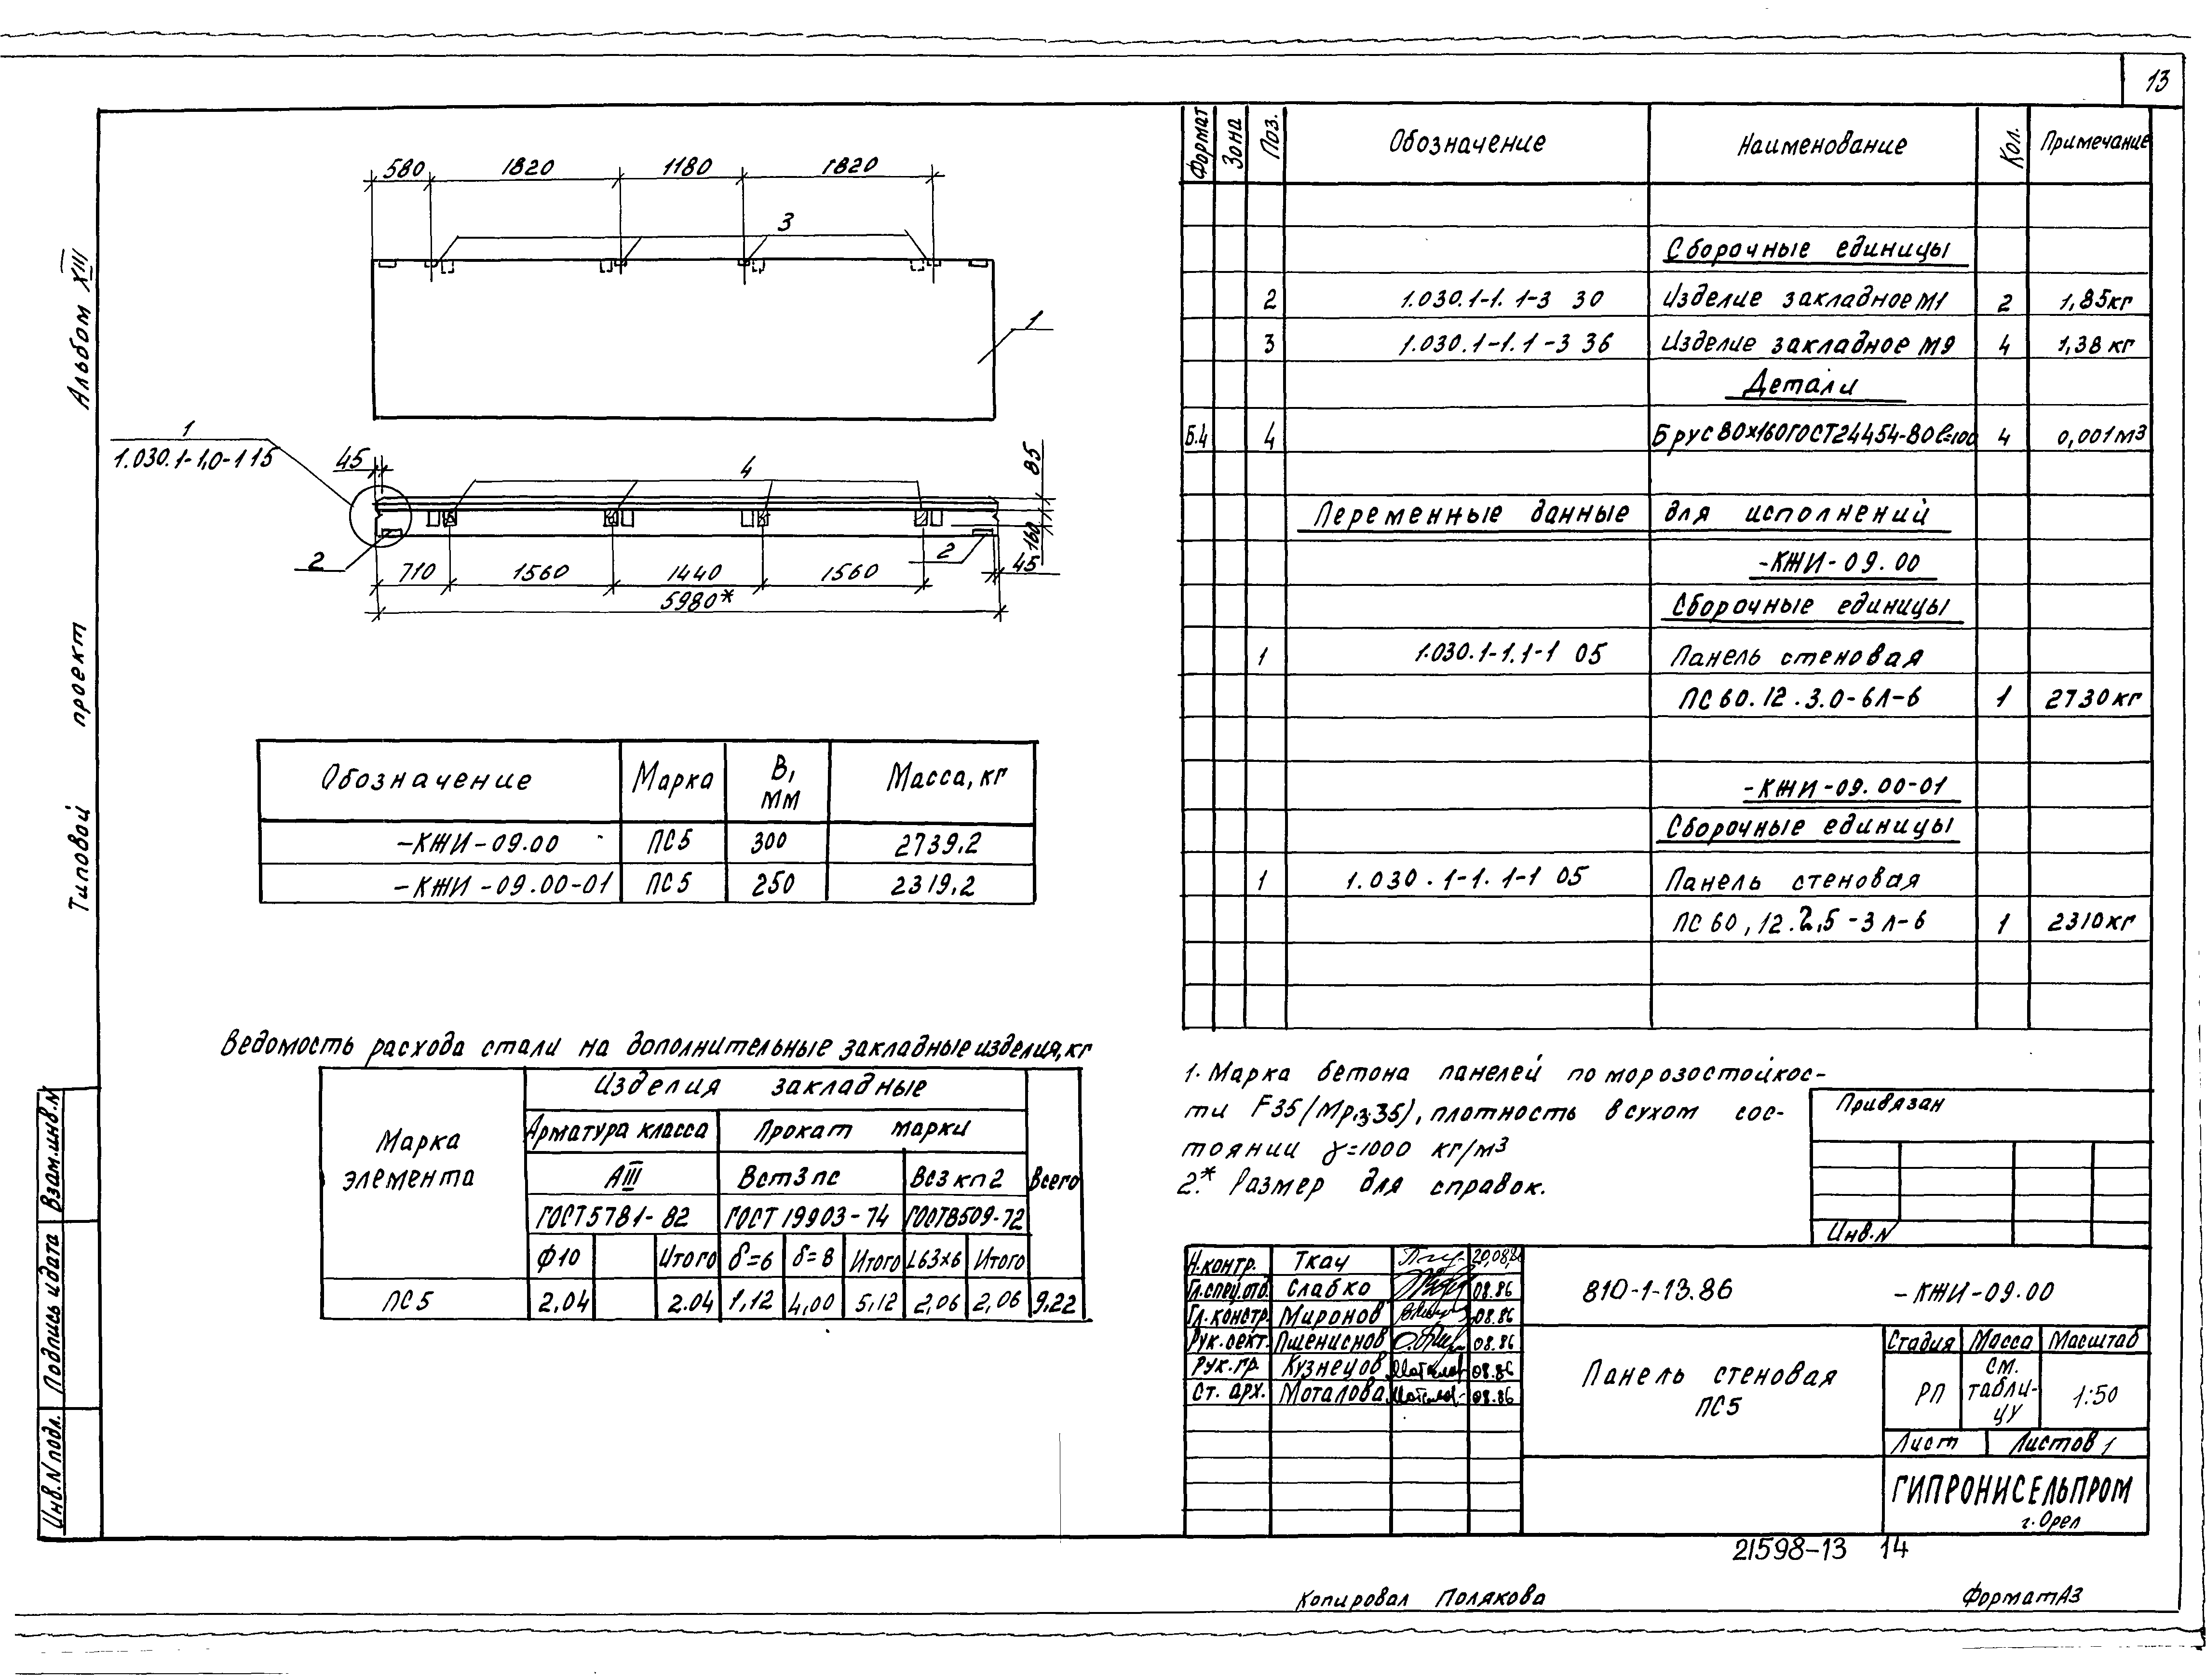 13
Альбом XIII
Типовой проект
Взам.инв.N
Подпись и дата
Инв.N подл.
580 1820 1180 1820
3
1
1
1.030.1-1,0-1 15
45
4
85
160
2
2
45
710 1560 1440 1560
5980*
Обозначение Марка В, мм Масса, кг
-КЖИ-09.00 ПС5 300 2739,2
-КЖИ-09.00-01 ПС5 250 2319,2
Ведомость расхода стали на дополнительные закладные изделия, кг
Марка элемента
Изделия закладные
Всего
Арматура класса Прокат марки
АIII Вст3пс Вс3кп2
ГОСТ 5781-82 ГОСТ 19903-74 ГОСТ 8509-72
Ф10 Итого δ=6 δ=8 Итого L63х6 Итого
ПС5 2,04 2.04 1,12 4,00 5,12 2,06 2,06 9,22
Формат Зона Поз. Обозначение Наименование Кол. Примечание
Сборочные единицы
2 1.030.1-1. 1-3 30 Изделие закладное М1 2 1,85кг
3 1.030.1-1.1-3 36 Изделие закладное М9 4 1,38 кг
Детали
Б.4 4 Брус 80х160 ГОСТ 24454-80 ℓ=100 4 0,001 м3
Переменные данные для исполнений
-КЖИ-09.00
Сборочные единицы
1 1.030.1-1.1-1 05 Панель стеновая
ПС 60.12.3.0-6Л-6 1 2730 кг
-КЖИ-09.00-01
Сборочные единицы
1 1.030.1-1.1-1 05 Панель стеновая
ПС 60,12.2,5-3Л-6 1 2310кг
1. Марка бетона панелей по морозостойкос-
ти F35/Мрз35), плотность в сухом сос-
тоянии γ=1000 кг/м3
2.* Размер для справок.
Привязан
Инв.N
Н.контр. Ткач 20,08,86
Гл.спец.отд. Слабко 08.86
Гл.констр. Миронов 08.86
Рук.сект. Пшениснов 08.86
Рук.гр. Кузнецов 08.86
Ст. арх. Моталова 08.86
810-1-13.86 -КЖИ-09.00
Панель стеновая
ПС5
Стадия Масса Масштаб
РП см. табли-цу 1:50
Лист Листов 1
ГИПРОНИСЕЛЬПРОМ
г.Орел
21598-13 14
Копировал Полякова
Формат А3